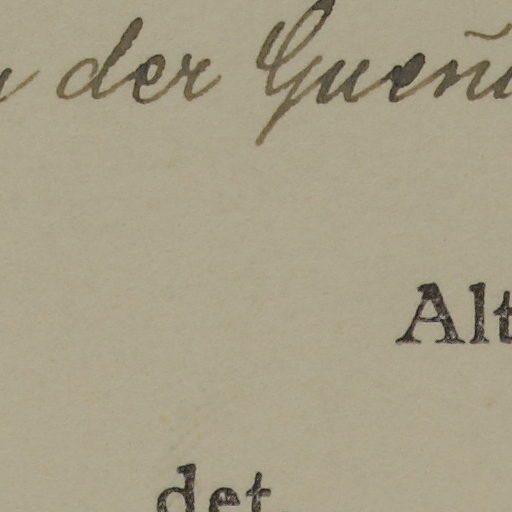 der Gueñ
Alt
det.